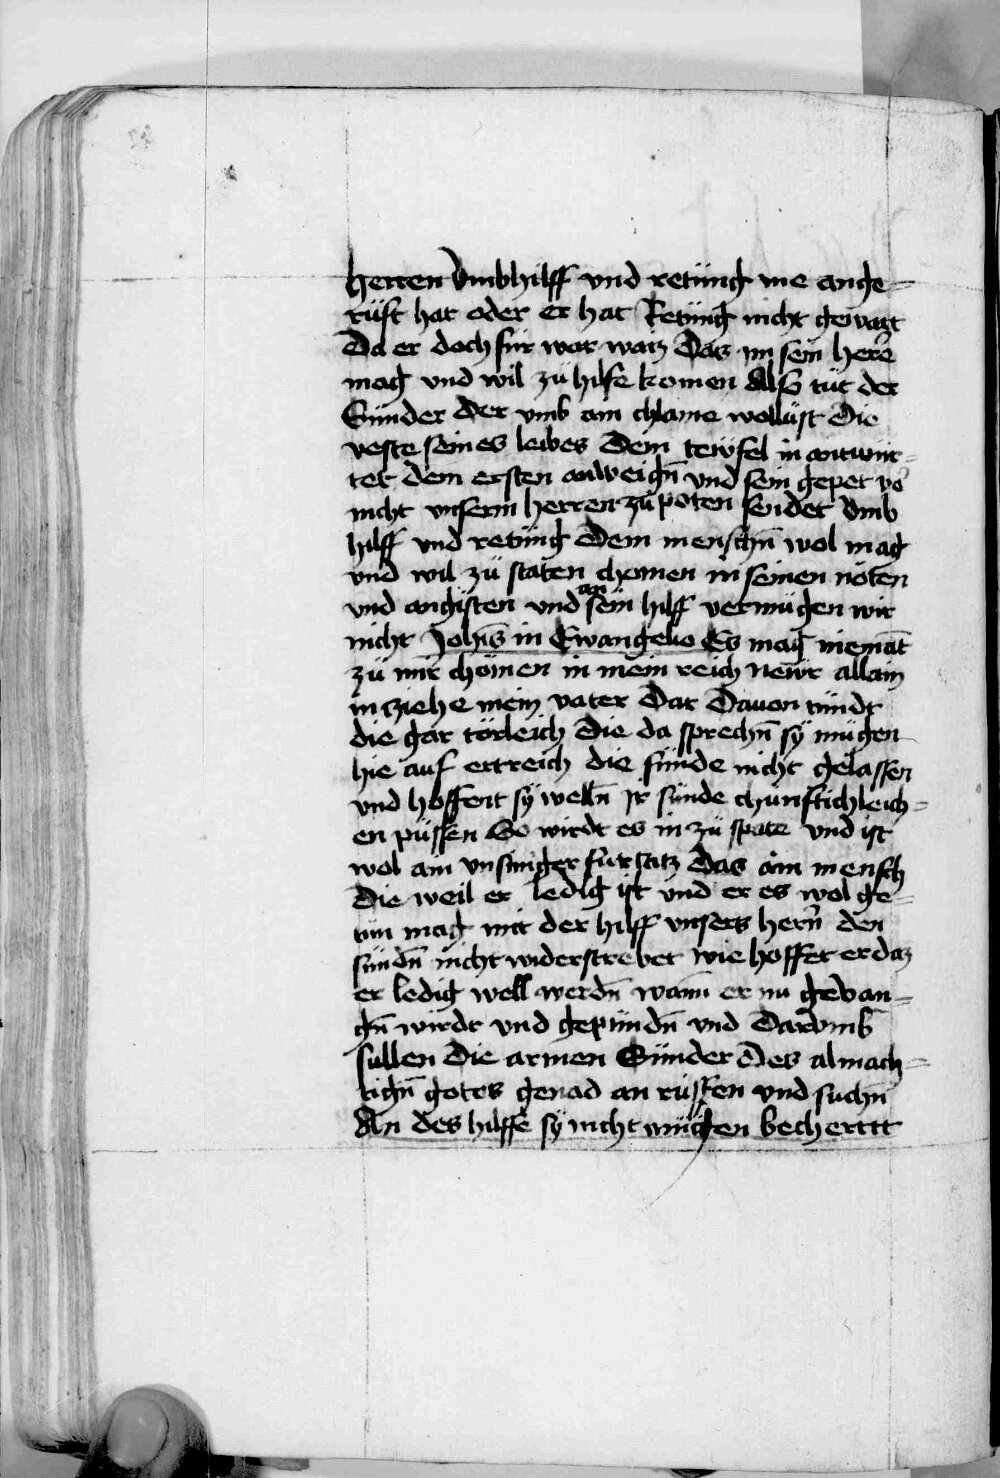 herren vmb hilff vnd retüng nie ange=
rüft hat oder er hat Retüng nicht gewart
Da er doch für war waiz Daz im sein herre
mag vnd wil zü hilfe komen Also tüt der
Sünder Der vmb ain chlaine wollüst Die
veste seines leibes Dem tewfel in antwür=
tet dem ersten anweign̄ vnd sein gepet vo
nicht vnserm herren zü poten sendet Vmb
hilff vnd retüng Dem menschn̄ wol mag
vnd wil zü staten chomen in seinen nöten
vnd angsten vnd an sein hilff vermügen wir
nicht Joh̄is in Ewangelio Es mag niemāt
zü mir chömen in mein reich Newr allain
in ziehe mein vater Dar Dauon tünd
die gar törleich Die da sprechn̄ sÿ mügen
hie auf ertreich die sünde nicht gelassen
vnd hoffent sÿ welln̄ Jr sünde chünftichleich=
en püssen So wirdt es in zü spate vnd ist
wol ain vnsinniger fürsatz Das ain mensch
Die weil er ledig ist vnd er es wol ge=
tün mag mit der hilff vnsers hern̄ den
sündn̄ nicht widerstrebet wie hoffet er daz
er ledig well werdn̄ wann er nu geuan=
gn̄ wirdt vnd gepündn̄ vnd Darvmb
sullen Die armen Sünder Des almach=
tign̄ gotes genad an rüffen vnd suchn̄
An des hilffe sÿ nicht mügen bechertt